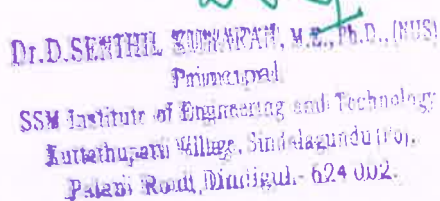 Dr.D.SENTHIL KUMARAN, M.E., Ph.D., (NUS)
Principal
SSM Institute of Engineering and Technology
Kuttathupatti Village, Sindalagundu (Po),
Palani Road, Dindigul - 624 002.